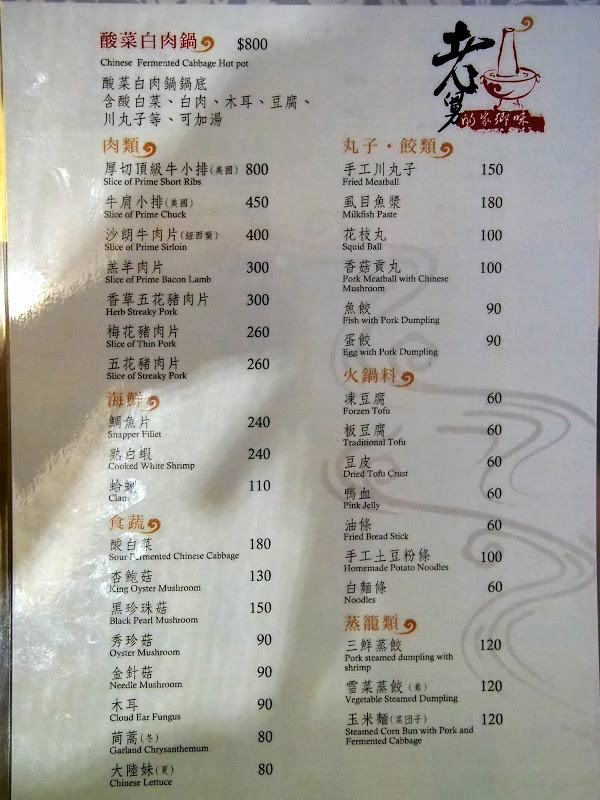 酸菜白肉鍋 $800
Chinese Fermented Cabbage Hot pot
酸菜白肉鍋鍋底
含酸白菜、白肉、木耳、豆腐、
川丸子等、可加湯
老舅
的家鄉味
肉類
厚切頂級牛小排(美國) 800
Slice of Prime Short Ribs
牛肩小排(美國) 450
Slice of Prime Chuck
沙朗牛肉片(紐西蘭) 400
Slice of Prime Sirloin
羔羊肉片 300
Slice of Prime Bacon Lamb
香草五花豬肉片 300
Herb Streaky Pork
梅花豬肉片 260
Slice of Thin Pork
五花豬肉片 260
Slice of Streaky Pork
海鮮
鯛魚片 240
Snapper Fillet
熟白蝦 240
Cooked White Shrimp
蛤蜊 110
Clam
食蔬
酸白菜 180
Sour Fermented Chinese Cabbage
杏鮑菇 130
King Oyster Mushroom
黑珍珠菇 150
Black Pearl Mushroom
秀珍菇 90
Oyster Mushroom
金針菇 90
Needle Mushroom
木耳 90
Cloud Ear Fungus
茼蒿(冬) 80
Garland Chrysanthemum
大陸妹(夏) 80
Chinese Lettuce
丸子・餃類
手工川丸子 150
Fried Meatball
虱目魚漿 180
Milkfish Paste
花枝丸 100
Squid Ball
香菇貢丸 100
Pork Meatball with Chinese
Mushroom
魚餃 90
Fish with Pork Dumpling
蛋餃 90
Egg with Pork Dumpling
火鍋料
凍豆腐 60
Forzen Tofu
板豆腐 60
Traditional Tofu
豆皮 60
Dried Tofu Crust
鴨血 60
Pink Jelly
油條 60
Fried Bread Stick
手工土豆粉條 100
Homemade Potato Noodles
白麵條 60
Noodles
蒸籠類
三鮮蒸餃 120
Pork steamed dumpling with
shrimp
雪菜蒸餃(素) 120
Vegetable Steamed Dumpling
玉米麵(菜団子) 120
Steamed Corn Bun with Pork and
Fermented Cabbage